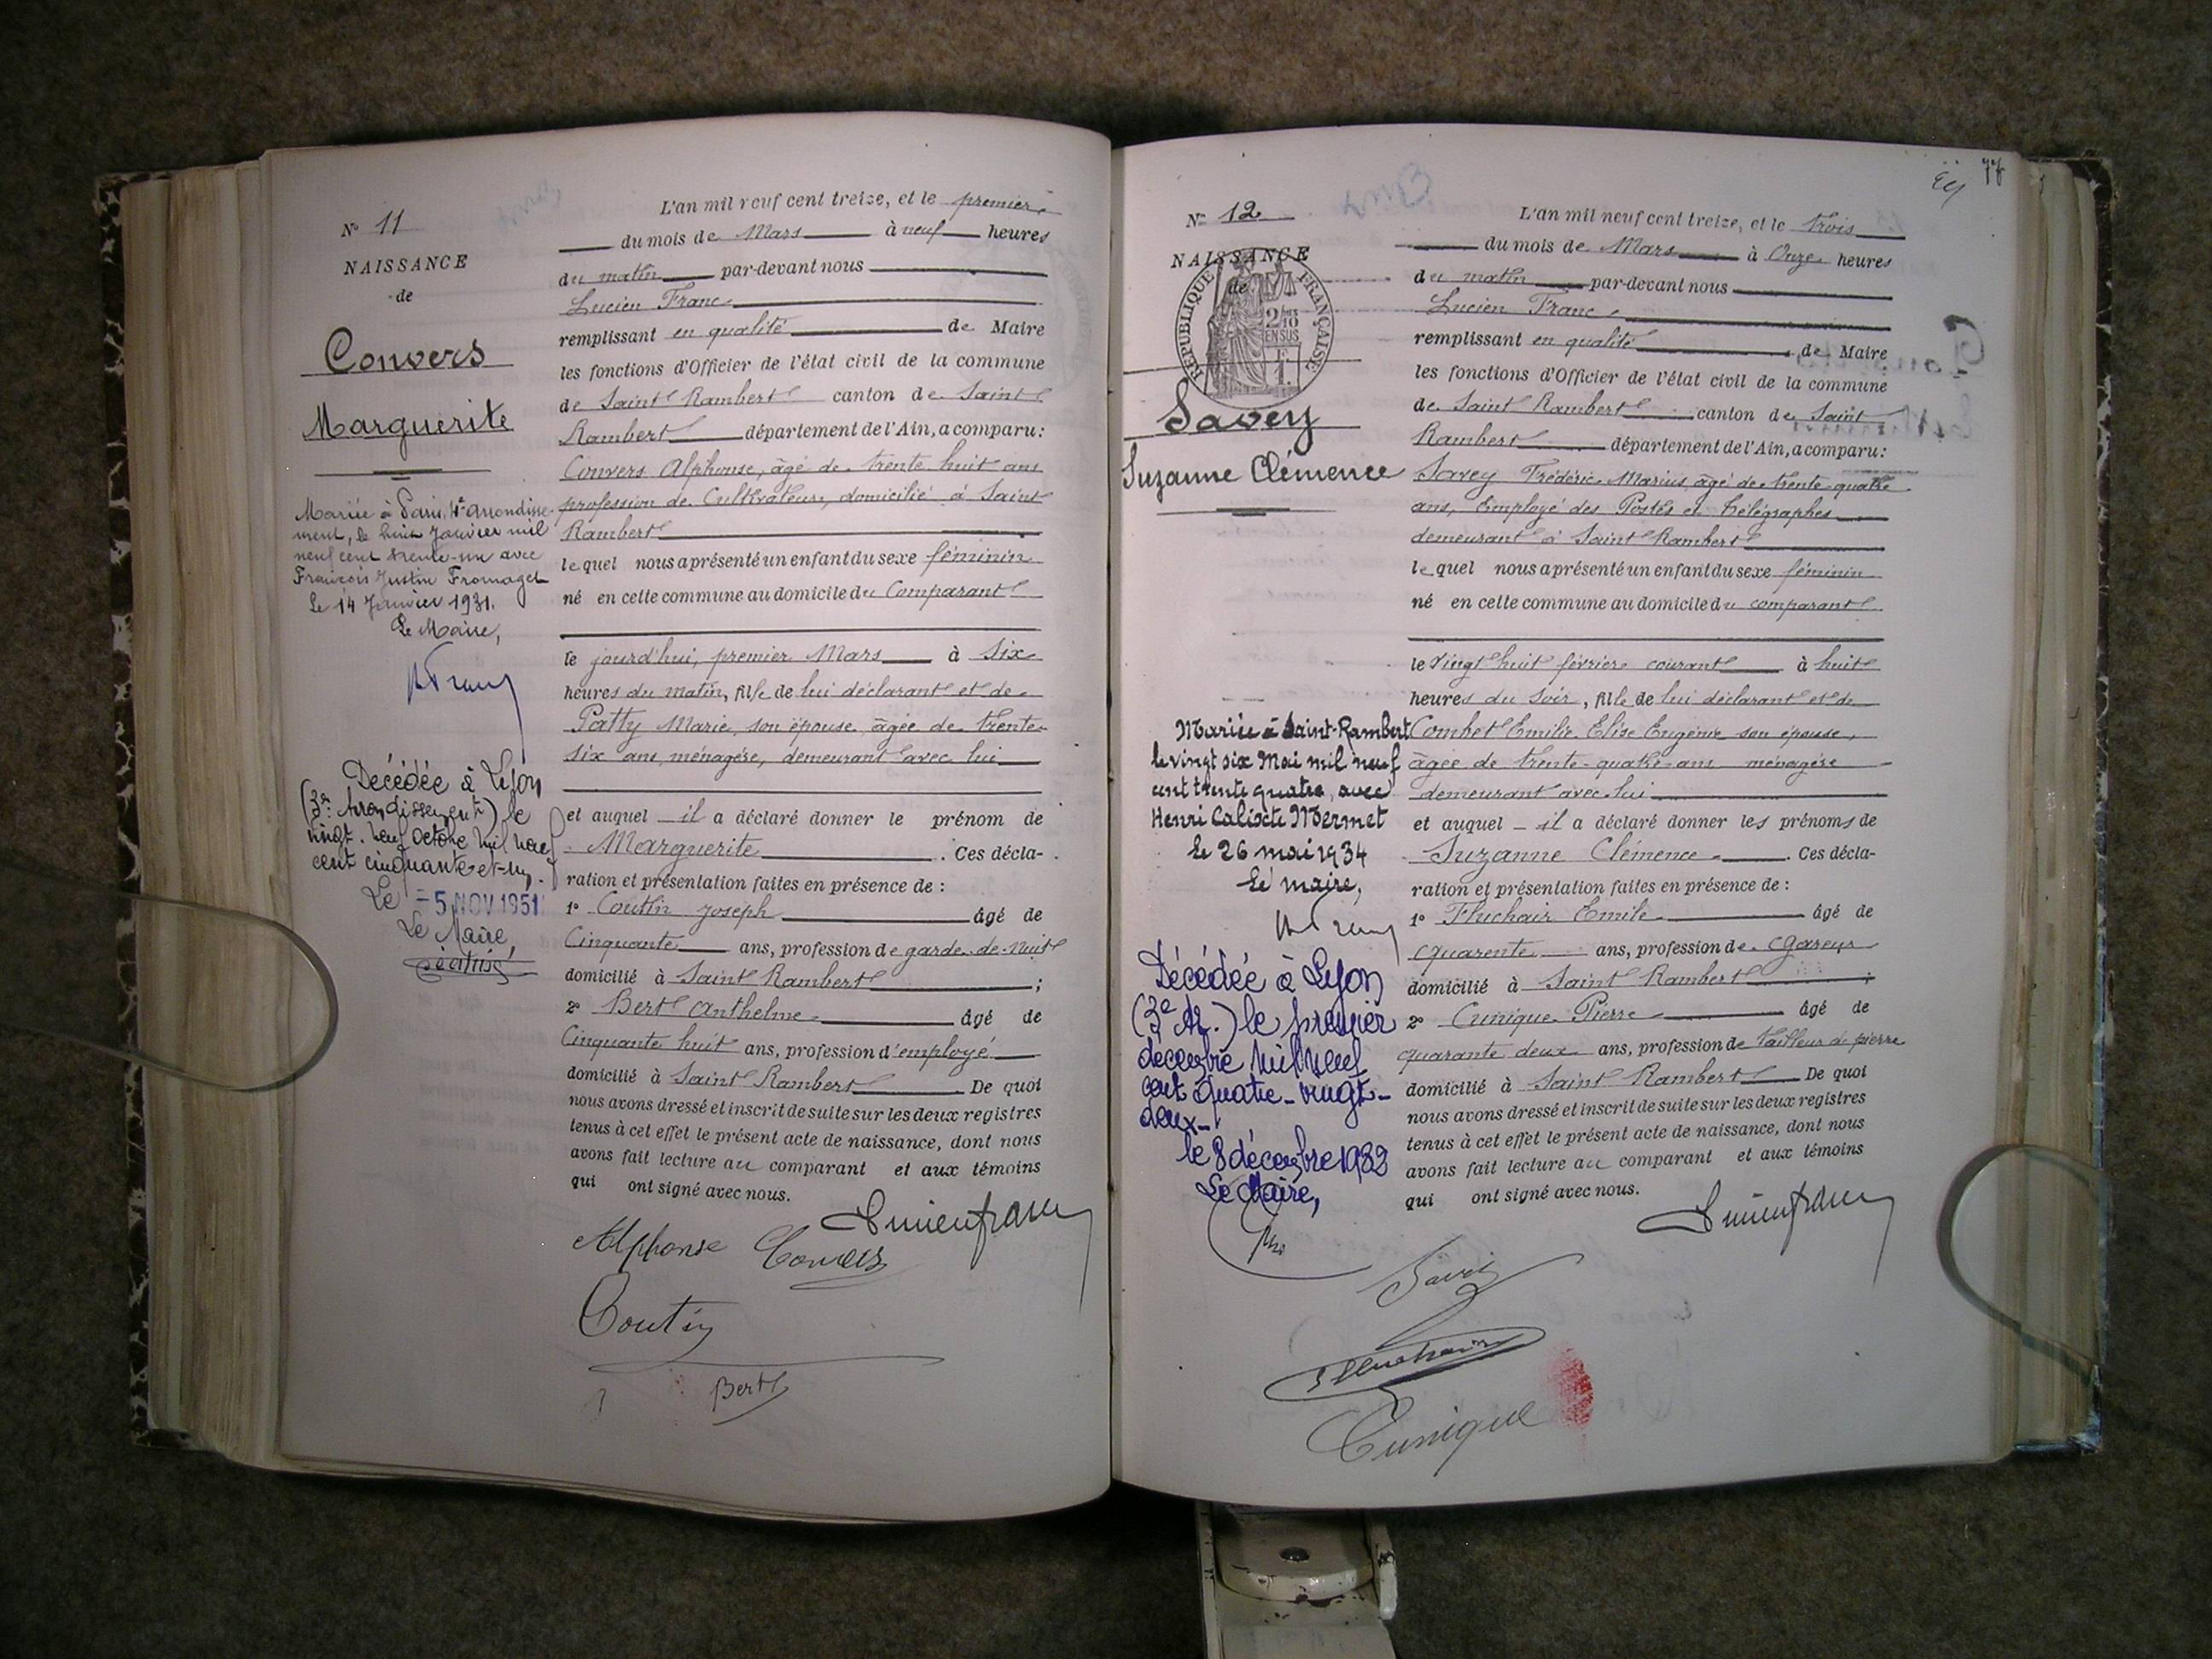 N° 11
NAISSANCE
de
Convers
Marguerite
Mariée à Paris, 4e arrondisse-
ment, le huit Janvier mil
neuf cent trente-un avec
François Justin Fromaget
Le 14 Janvier 1931.
Le Maire,
Décédée à Lyon
(3e Arrondissement) le
vingt-neuf octobre mil neuf
cent cinquante-et-un.
Le -5 NOV 1951
Le Maire,
L'an mil neuf cent treize, et le premier
du mois de Mars à neuf heures
du matin par-devant nous
Lucien Franc
remplissant en qualité de Maire
les fonctions d'Officier de l'état civil de la commune
de Saint Rambert canton de Saint
Rambert département de l'Ain, a comparu:
Convers Alphonse, âgé de trente huit ans
profession de Cultivateur, domicilié à Saint
Rambert
lequel nous a présenté un enfant du sexe féminin
né en cette commune au domicile du Comparant
le jourd'hui, premier Mars à Six
heures du matin, fille de lui déclarant et de
Patty Marie, son épouse, âgée de trente
six ans, ménagère, demeurant avec lui
et auquel il a déclaré donner le prénom de
Marguerite. Ces décla-
ration et présentation faites en présence de :
1° Coutin Joseph âgé de
Cinquante ans, profession de garde-de-Nuit
domicilié à Saint Rambert ;
2° Bert Anthelme âgé de
Cinquante huit ans, profession d'employé
domicilié à Saint Rambert De quoi
nous avons dressé et inscrit de suite sur les deux registres
tenus à cet effet le présent acte de naissance, dont nous
avons fait lecture au comparant et aux témoins
qui ont signé avec nous.
Lucien franc
Alphonse Convers
Coutin
Bert
77
N° 12
NAISSANCE
de
RÉPUBLIQUE FRANÇAISE
2/10
EN SUS
Savey
Suzanne Clémence
Mariée à Saint-Rambert
le vingt six Mai mil neuf
cent trente quatre, avec
Henri Calixte Mermet
le 26 mai 1934
Le maire,
Décédée à Lyon
(3e Ar.) le premier
décembre mil neuf
cent quatre-vingt-
deux-
le 8 décembre 1982
Le Maire,
L'an mil neuf cent treize, et le trois
du mois de Mars à Onze heures
du matin par-devant nous
Lucien Franc
remplissant en qualité de Maire
les fonctions d'Officier de l'état civil de la commune
de Saint Rambert canton de Saint
Rambert département de l'Ain, a comparu:
Savey Frédéric Marius, âgé de trente-quatre
ans, Employé des Postes et télégraphes
demeurant à Saint Rambert
lequel nous a présenté un enfant du sexe féminin
né en cette commune au domicile du comparant
le Vingt huit février courant à huit
heures du Soir, fille de lui déclarant et de
Combet Emilie Elise Eugénie son épouse,
âgée de trente-quatre ans ménagère
demeurant avec lui
et auquel il a déclaré donner les prénoms de
Suzanne Clémence. Ces décla-
ration et présentation faites en présence de :
1° Fluchair Emile âgé de
quarente ans, profession de Gareur
domicilié à Saint Rambert ;
2° Cunique Pierre âgé de
quarante deux ans, profession de tailleur de pierre
domicilié à Saint Rambert De quoi
nous avons dressé et inscrit de suite sur les deux registres
tenus à cet effet le présent acte de naissance, dont nous
avons fait lecture au comparant et aux témoins
qui ont signé avec nous.
Lucien franc
Savey
Cunique